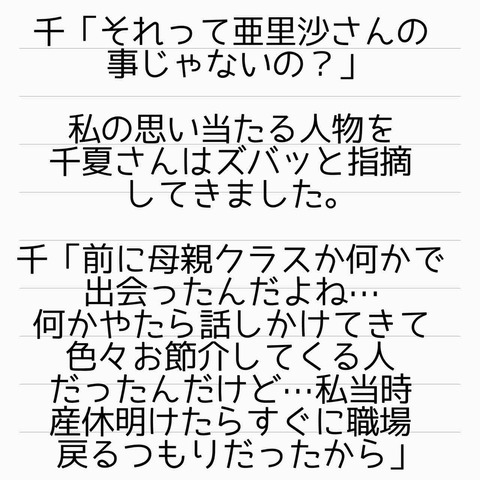 千「それって亜里沙さんの
事じゃないの？」
私の思い当たる人物を
千夏さんはズバッと指摘
してきました。
千「前に母親クラスか何かで
出会ったんだよね…
何かやたら話しかけてきて
色々お節介してくる人
だったんだけど…私当時
産休明けたらすぐに職場
戻るつもりだったから」